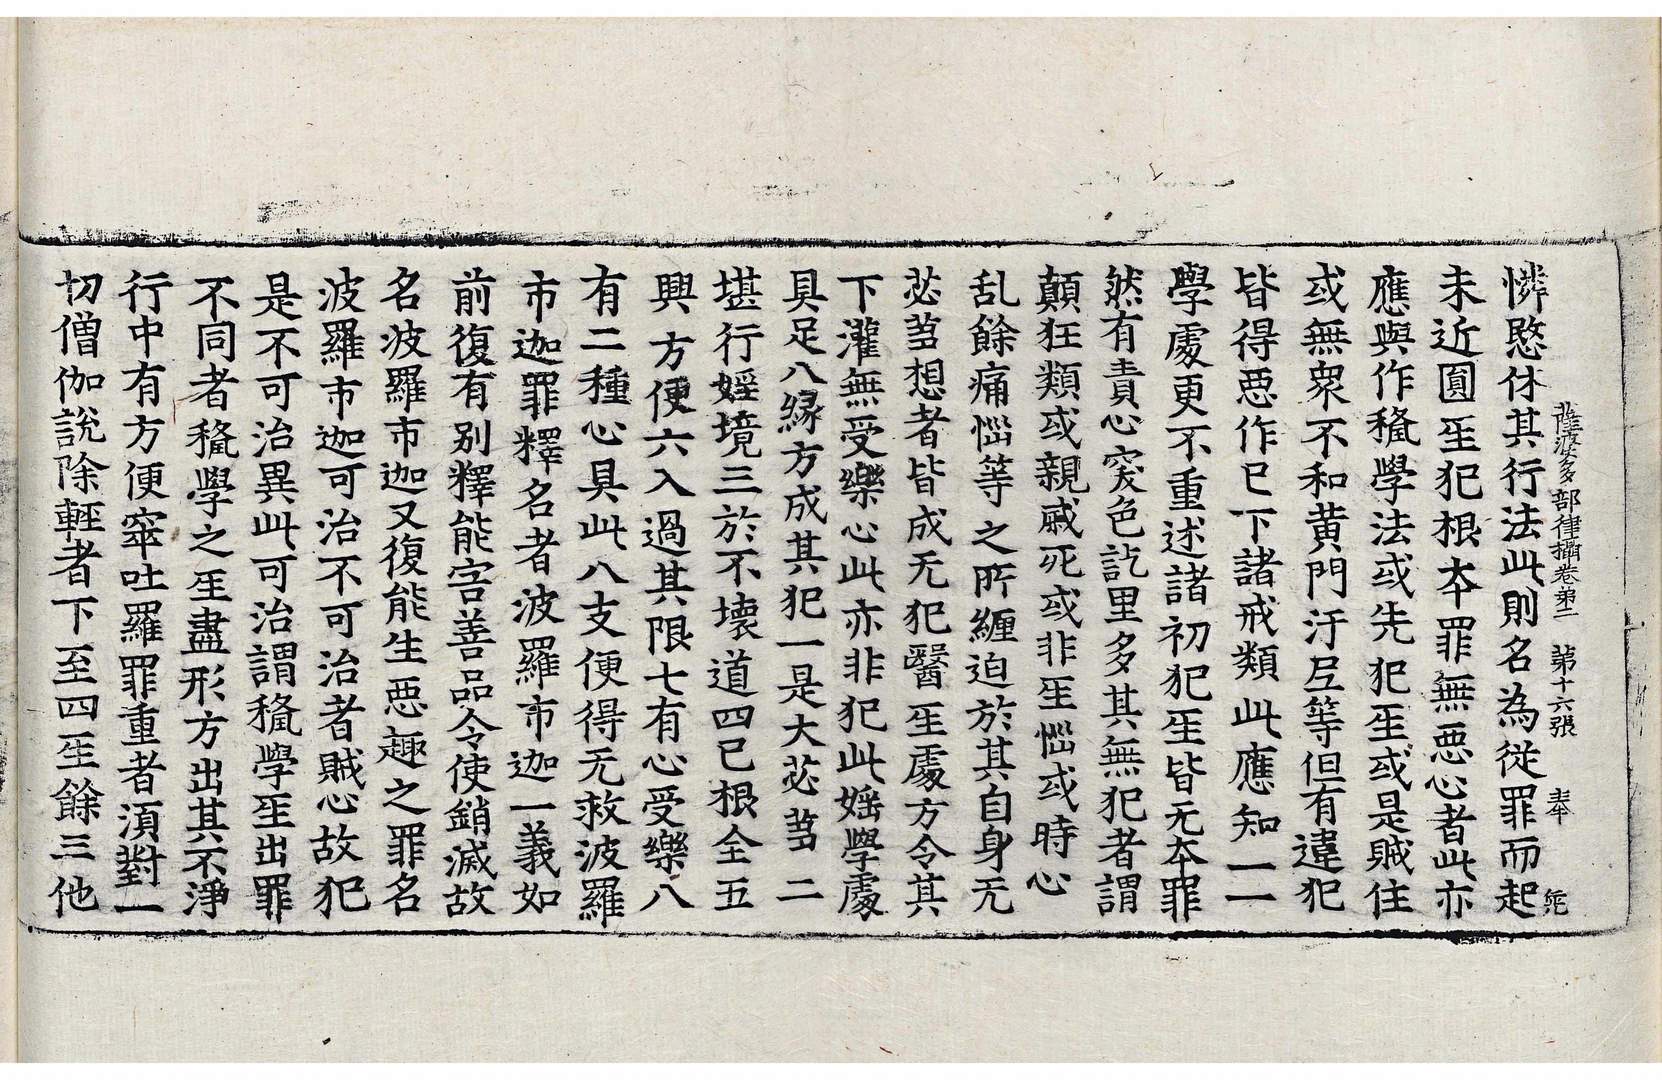 薩波多部律攝卷第二　第十六張　奉
憐愍休其行法此則名為從罪而起
未近圓𤯔犯根夲罪無惡心者此亦
應與作䅻學法或先犯𤯔或是賊住
或無衆不和黃門汙㞐等但有違犯
皆得惡作已下諸戒類此應知一一
學處更不重述諸初犯𤯔皆无夲罪
然有責心突色訖里多其無犯者謂
顛狂類或親戚死或非𤯔惱或時心
乱餘痛惱等之所纏迫於其自身无
苾芻想者皆成无犯醫𤯔處方令其
下灌無受樂心此亦非犯此婬學處
具足八縁方成其犯一是大苾芻二
堪行婬境三於不壞道四已根全五
興方便六入過其限七有心受樂八
有二種心具此八支便得无救波羅
市迦罪釋名者波羅市迦一義如
前復有别釋能害善品令使銷滅故
名波羅市迦又復能生惡趣之罪名
波羅市迦可治不可治者賊心故犯
是不可治異此可治謂䅻學𤯔出罪
不同者䅻學之𤯔盡形方出其不淨
行中有方便窣吐羅罪重者須對一
切僧伽說除輕者下至四𤯔餘三他